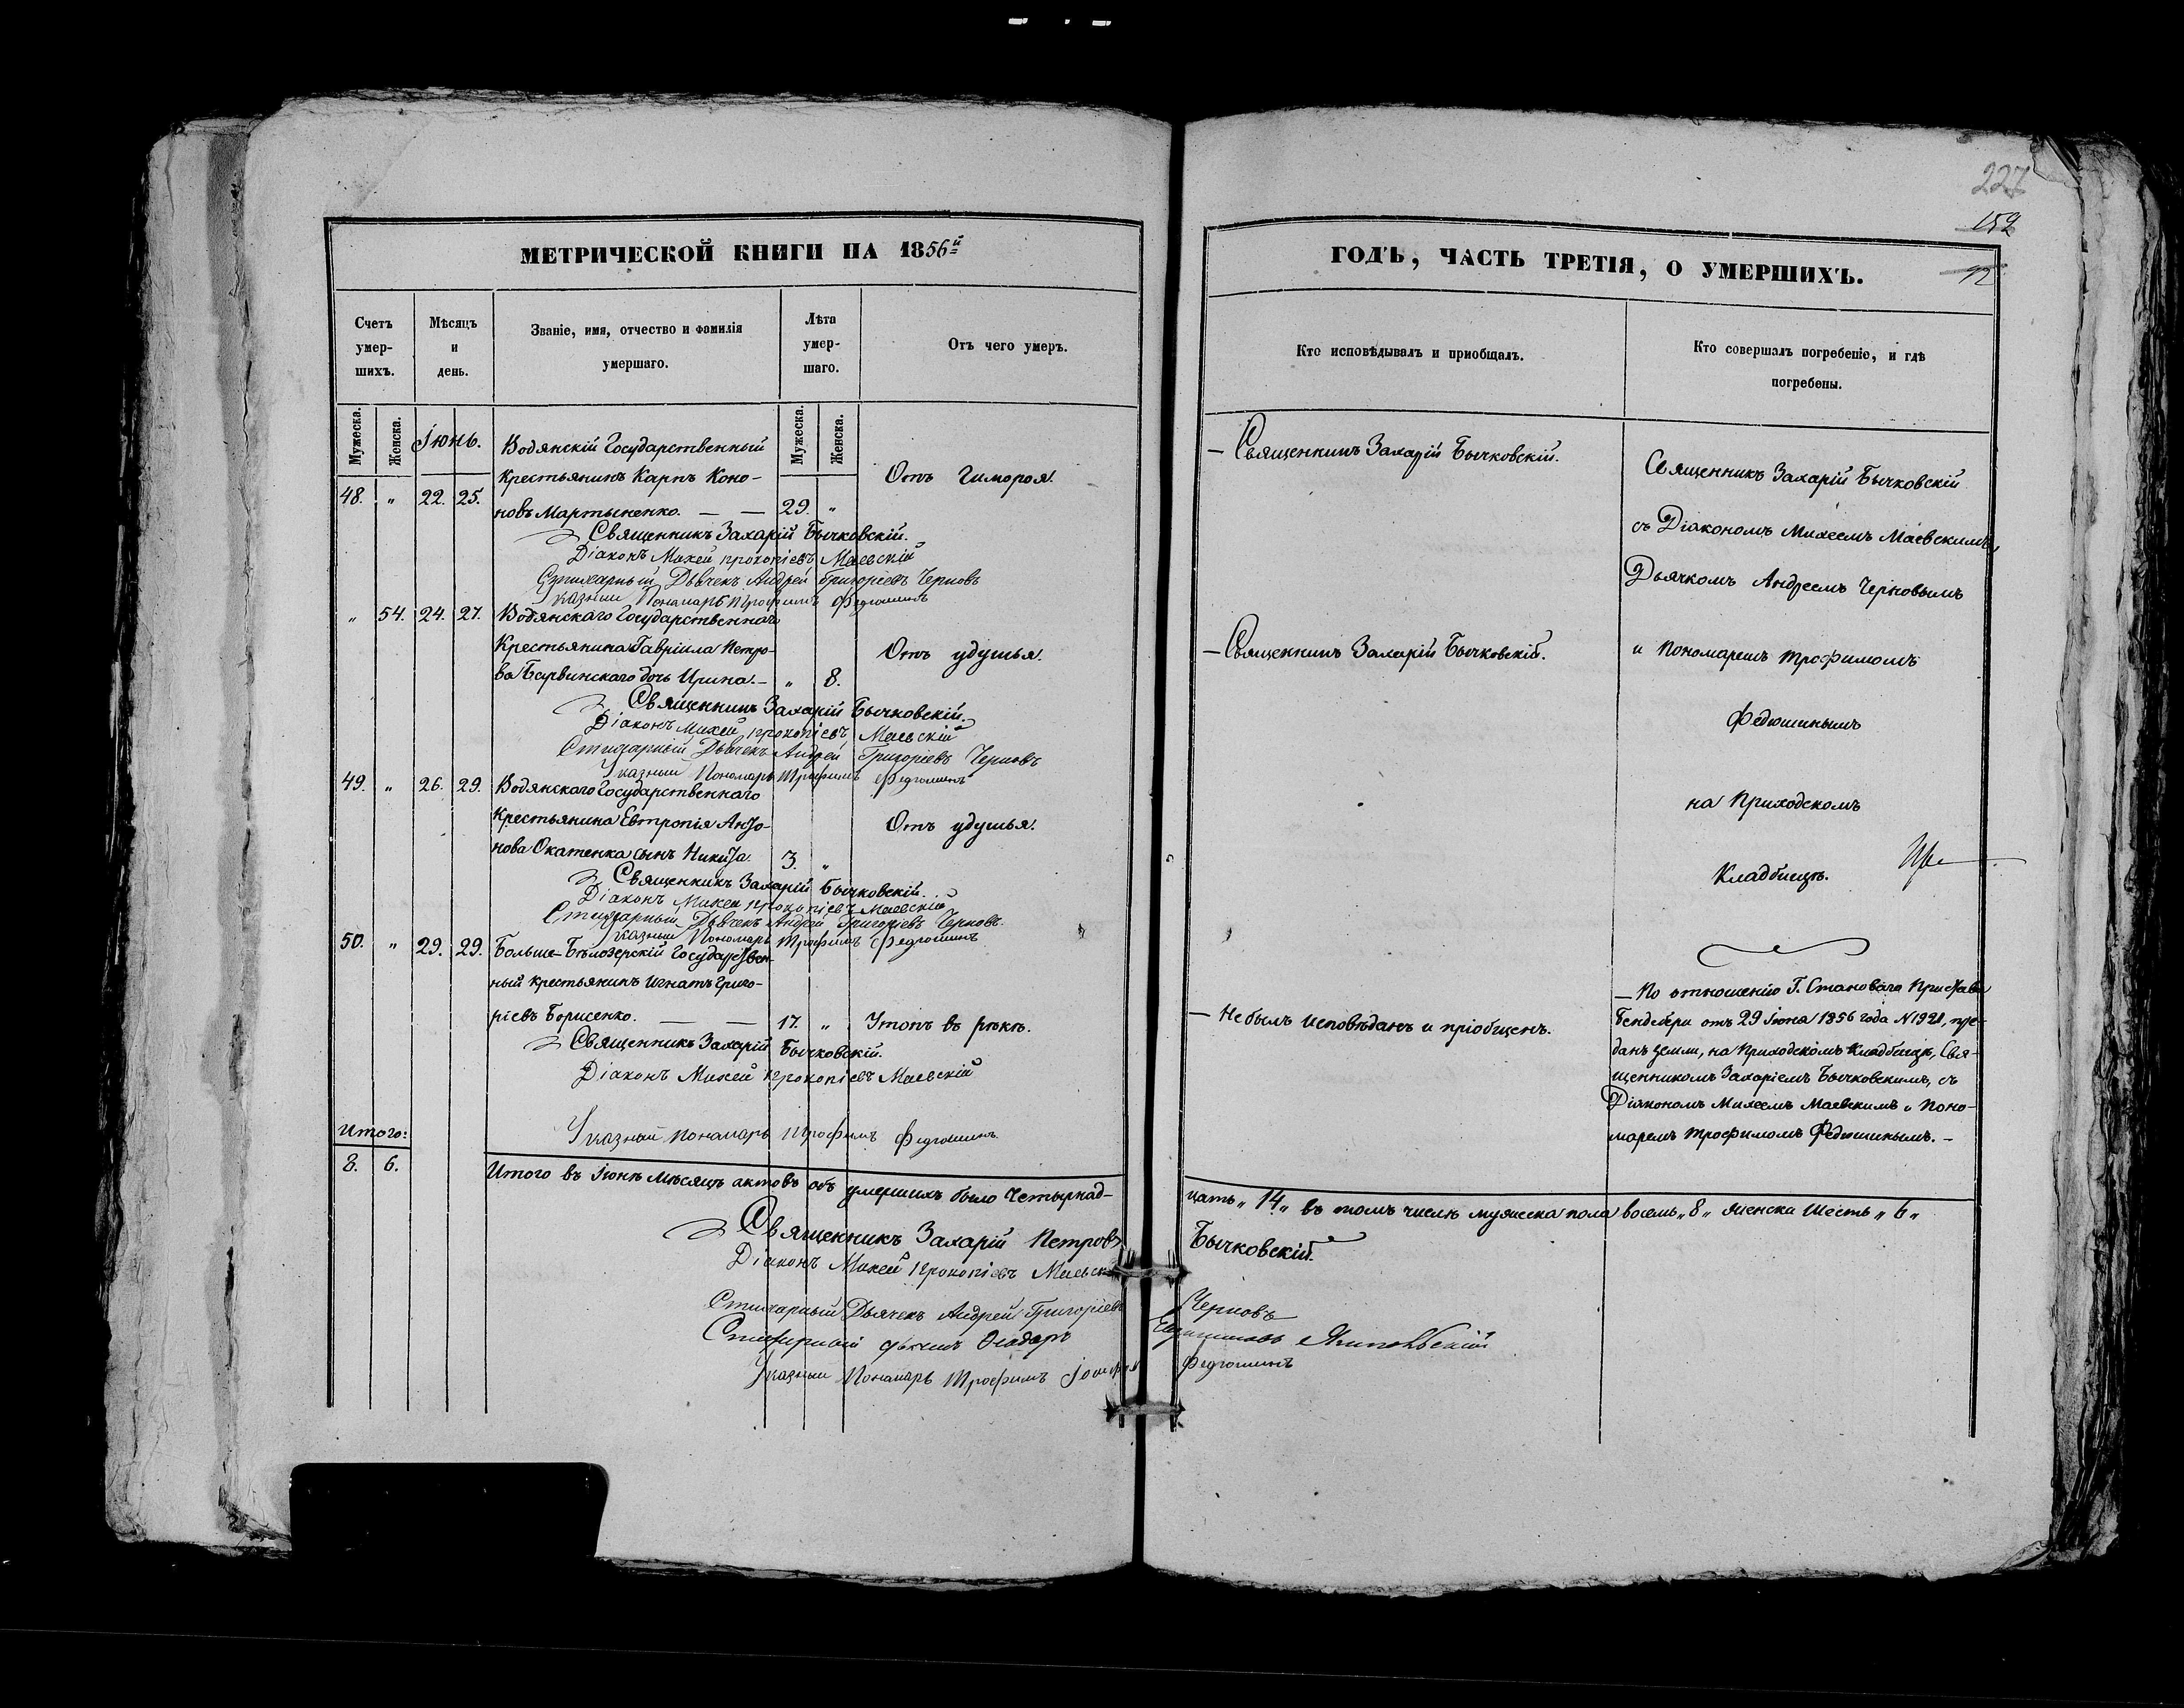 227
152
92
МЕТРИЧЕСКОЙ КНИГИ НА 1856й
ГОДЪ, ЧАСТЬ ТРЕТІЯ, О УМЕРШИХЪ.
Счетъ умер-шихъ.
Мѣсяцъ и день.
Званіе, имя, отчество и фамилія умершаго.
Лѣта умер-шаго.
Отъ чего умеръ.
Кто исповѣдывалъ и приобщалъ.
Кто совершалъ погребеніе, и гдѣ погребены.
Мужеска.
Женска.
Іюнь.
Мужеска.
Женска.
Водянскій Государственный
Крестьянинъ Карпъ Коно-
48. " 22. 25. новъ Мартыненко. — — 29. "
Отъ Гимороя.
— Священникъ Захарій Бычковскій.
Священникъ Захарій Бычковскій.
Діаконъ Михей Прокопіевъ Маевскій
Стихарный Дьячекъ Андрей Григоріевъ Черновъ
Указный Пономарь Трофимъ Федюшинъ
" 54. 24. 27. Водянскаго Государственнаго
Крестьянина Гавріила Петро-
ва Барвинскаго дочь Ирина. — " 8.
Отъ удушья.
— Священникъ Захарій Бычковскій.
Священникъ Захарій Бычковскій.
Діаконъ Михей Прокопіевъ Маевскій
Стихарный Дьячекъ Андрей Григоріевъ Черновъ
Указный Пономарь Трофимъ Федюшинъ
49. " 26. 29. Водянскаго Государственнаго
Крестьянина Евтропія Анто-
нова Окатенка сынъ Никита. 3. "
Отъ удушья.
Священникъ Захарій Бычковскій.
Діаконъ Михей Прокопіевъ Маевскій
Стихарный Дьячекъ Андрей Григоріевъ Черновъ.
Указный Пономарь Трофимъ Федюшинъ
50. " 29. 29. Больше-Бѣлозерскій Государствен-
ный крестьянинъ Игнатъ Григо-
ріевъ Борисенко. — — 17. "
Утопъ въ рѣкѣ.
— Не былъ исповѣданъ и пріобщенъ.
Священникъ Захарій Бычковскій.
Діаконъ Михей Прокопіевъ Маевскій
Указный Пономарь Трофимъ Федюшинъ
Священникъ Захарій Бычковскій
съ Діакономъ Михеемъ Маевскимъ,
Дьячкомъ Андреемъ Черновымъ
и Пономаремъ Трофимомъ
Федюшинымъ
на Приходскомъ
Кладбищѣ.
— По отношенію Г. Становаго Пристава
отъ 29 Іюня 1856 года N 1921, пре-
данъ земли, на Приходскомъ Кладбищѣ, Свя-
щенникомъ Захаріемъ Бычковскимъ, съ
Діакономъ Михеемъ Маевскимъ и Поно-
маремъ Трофимомъ Федюшинымъ. —
Итого:
8. 6.
Итого въ Іюнѣ мѣсяцѣ актовъ объ умершихъ было Четырнад-
цать „14„ въ томъ числѣ мужеска пола восемь „8„ женска шесть „6„
Священникъ Захарій Петровъ Бычковскій.
Діаконъ Михей Прокопіевъ Маевскій
Стихарный Дьячекъ Андрей Григоріевъ Черновъ
Стихарный дьячекъ
Указный Пономарь Трофимъ Федюшинъ